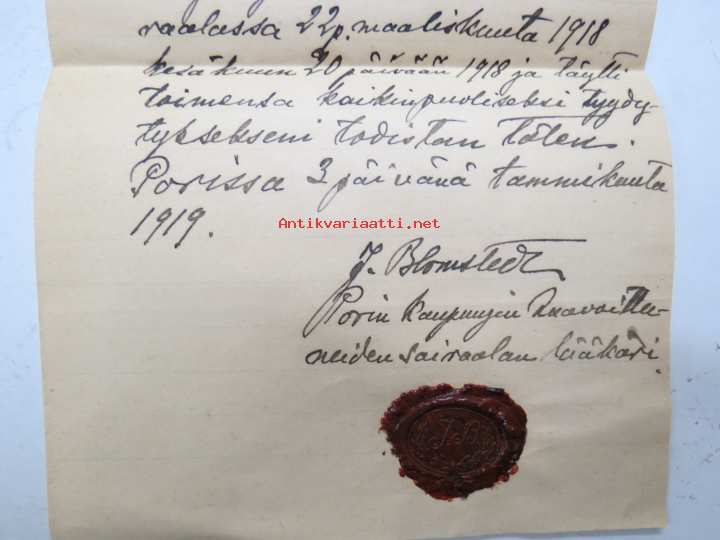 raalassa 22p. maaliskuuta 1918
kesäkuun 20 päivään 1918 ja täytti
toimensa kaikinpuoliseksi tyydy-
tyksekseni todistan täten.
Porissa 3 päivänä tammikuuta
1919.
Antikvariaatti.net
J. Blomstedt
Porin kaupungin haavoittu-
neiden sairaalan lääkäri.
JB